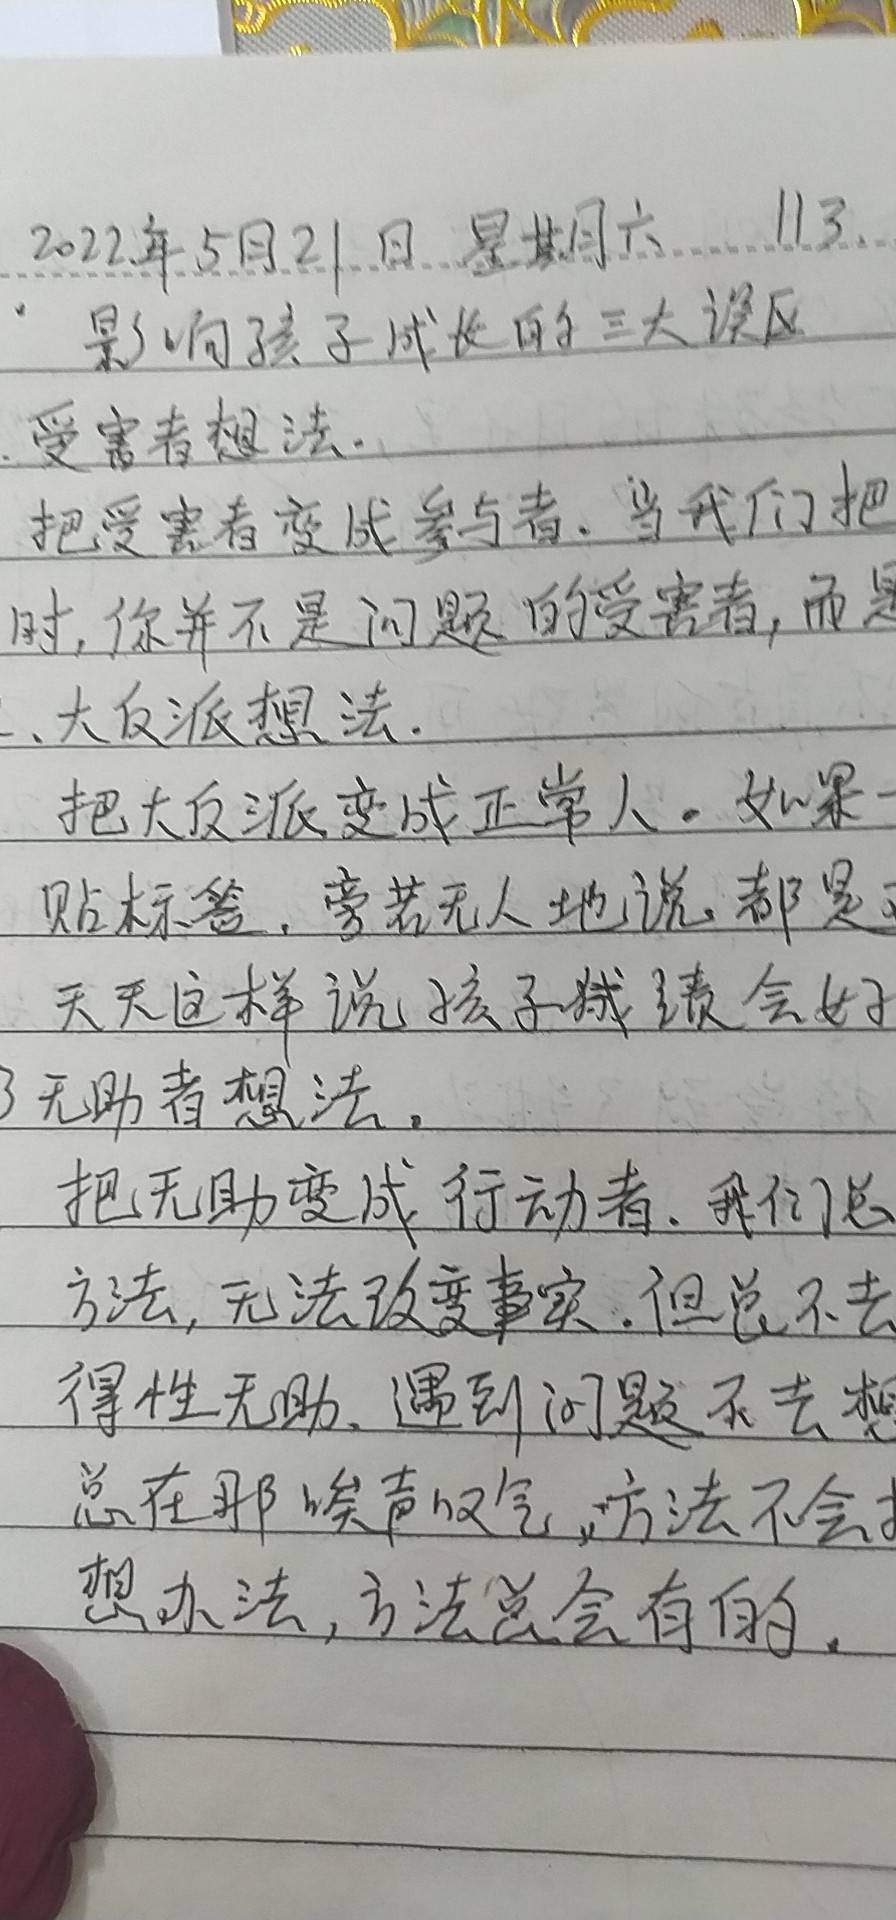 2022年5月21日 星期六 113.
影响孩子成长的三大误区
受害者想法.
把受害者变成参与者.当我们把
时,你并不是问题的受害者,而是
、大反派想法.
把大反派变成正常人。如果一
贴标签.旁若无人地说.都是
天天这样说孩子成绩会好
3无助者想法。
把无助变成行动者.我们总
方法,无法改变事实.但总不去
得性无助、遇到问题不去想
总在那唉声叹气,方法不会
想办法,方法总会有的.